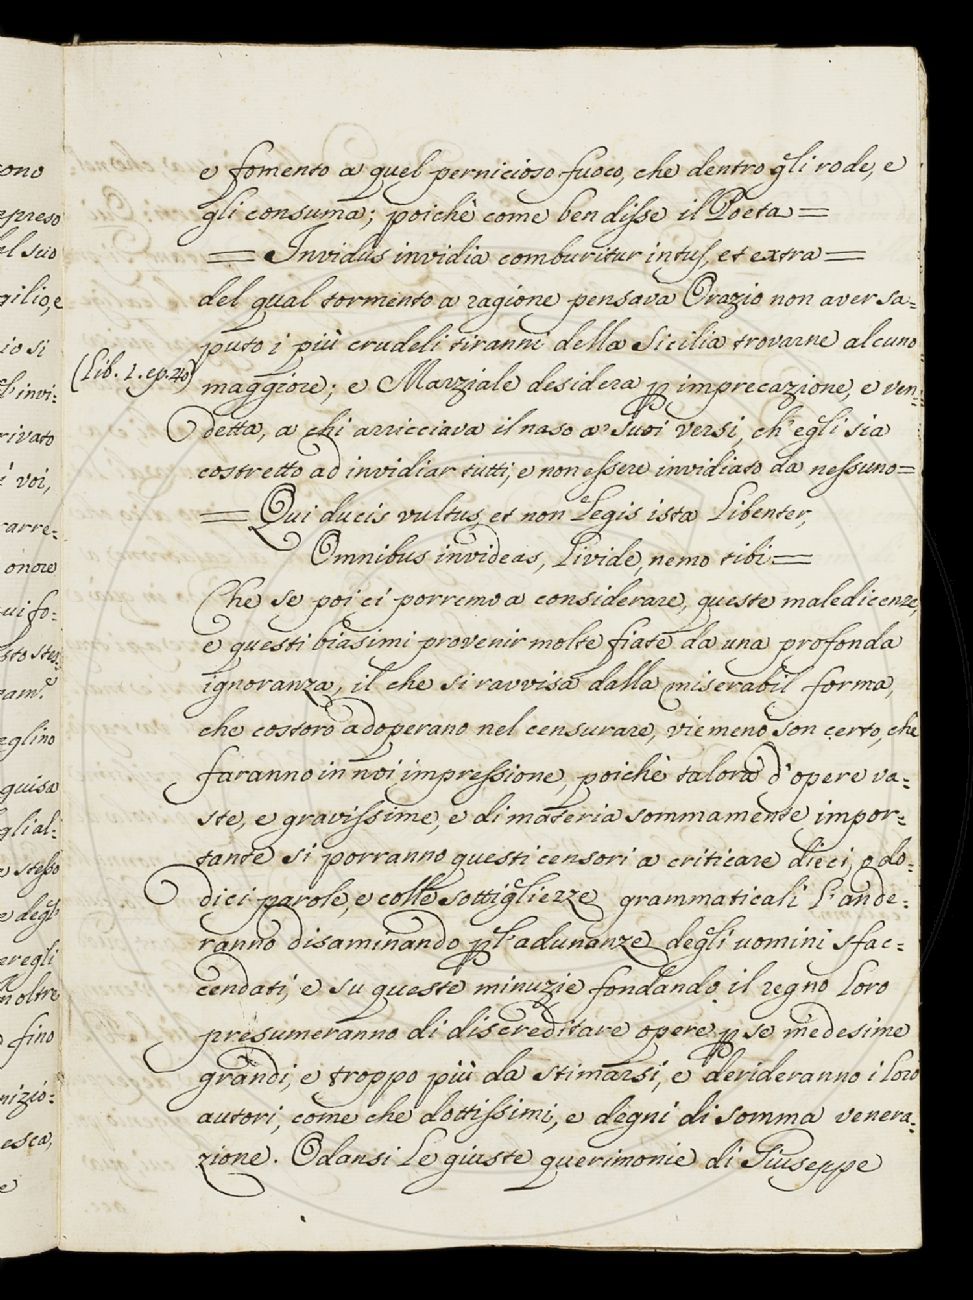 e fomento a quel pernicioso fuoco, che dentro gli rode, e
gli consuma; poichè come ben disse il Poeta =
= Invidus invidia comburitur intus, et extra =
del qual tormento a ragione pensava Orazio non aver sa=
puto i più crudeli tiranni della Sicilia trovarne alcuno
(Lib. 1. ep. 40)
maggiore; e Marziale desidera p imprecazione, e ven=
detta, a chi arricciava il naso a' suoi versi, ch' egli sia
costretto ad invidiar tutti, e non essere invidiato da nessuno =
= Qui ducis vultus, et non Legis ista Libenter,
Omnibus invideas, Livide, nemo tibi =
Che se poi ci porremo a considerare, queste maledicenze,
e questi biasimi provenir molte fiate da una profonda
ignoranza, il che si ravvisa dalla miserabil forma,
che costoro adoperano nel censurare, vie meno son certo, che
faranno in noi impressione, poichè talora d' opere va=
ste, e gravissime, e di materia sommamente impor=
tante si porranno questi censori a criticare dieci, o do=
dici parole, e colle sottigliezze grammaticali l' ande=
ranno disaminando p l' adunanze degli uomini sfac=
cendati, e su queste minuzie fondando il regno loro
presumeranno di discreditare opere p se medesime
grandi, e troppo più da stimarsi, e derideranno i loro
autori, come che dottissimi, e degni di somma venera=
zione. Odansi Le giuste querimonie di Giuseppe
ono
preso
al suo
gilio, e
io si
l' invi=
rivato
voi,
arre=
onore
ui fo=
sto ste=
eglino
guisa
gli al=
stesso
e degl'
inoltre
fino
nizio=
esca,
e